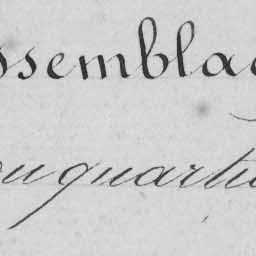 ssembla
ou quartie